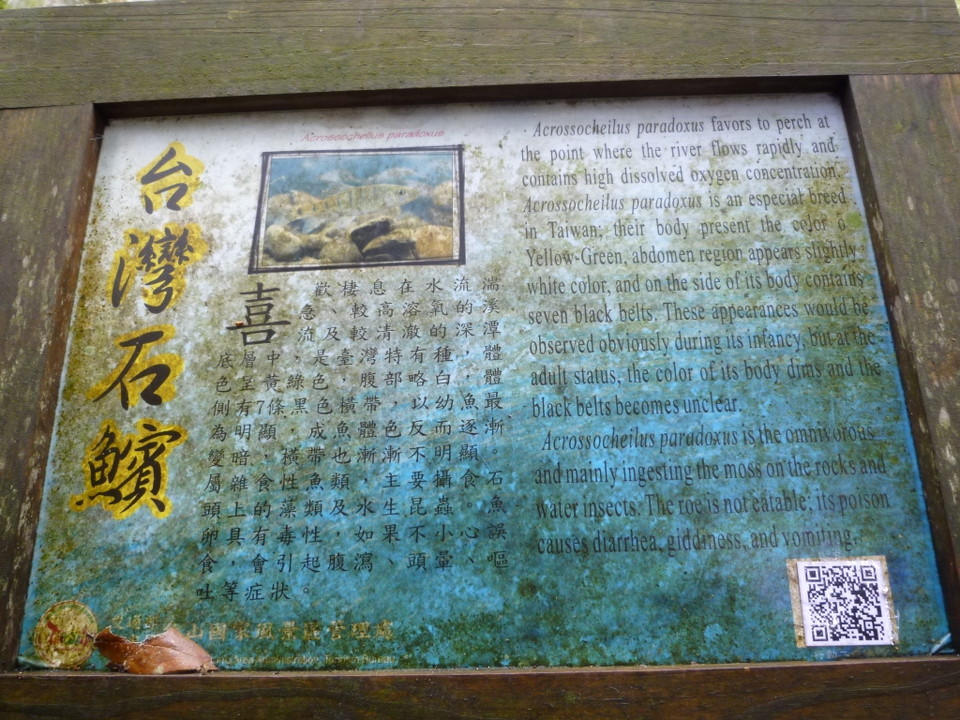 台灣石鱝
Acrossocheilus paradoxus
喜歡棲息在水流湍
急、較高溶氧的溪
流及較清澈的深潭
底層中，是臺灣特有種，體
色呈黃綠色，腹部略白，體
側有7條黑色橫帶，以幼魚最
為明顯，成魚體色反而逐漸
變暗，橫帶也漸漸不明顯。
屬雜食性魚類，主要攝食石
頭上的藻類及水生昆蟲。魚
卵具有毒性，如果不小心誤
食，會引起腹瀉、頭暈、嘔
吐等症狀。
Acrossocheilus paradoxus favors to perch at
the point where the river flows rapidly and
contains high dissolved oxygen concentration.
Acrossocheilus paradoxus is an especial breed
in Taiwan; their body present the color o
Yellow-Green, abdomen region appears slightly
white color, and on the side of its body contains
seven black belts. These appearances would be
observed obviously during its infancy, but at the
adult status, the color of its body dims and the
black belts becomes unclear.
Acrossocheilus paradoxus is the omnivorous
and mainly ingesting the moss on the rocks and
water insects. The roe is not eatable; its poison
causes diarrhea, giddiness, and vomiting.
山國家風景區管理處